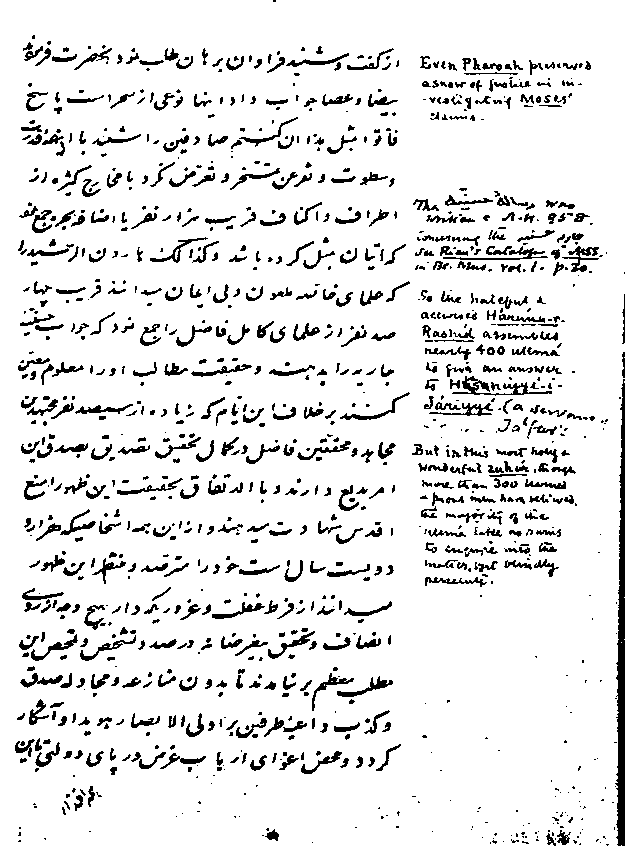 از گفت و شنید فراوان برهان طلب نمود بحضرت فرمود
بیضا و عصا جواب داد اینها نوعی از سحر است پاسخ
فأتوا بمثل هذا ان کنتم صادقین را شنید با اینهمه قدرت
و سطوت و تفرعن متمسخر و تعرض نکرد با مخارج کثیره از
اطراف و اکناف قریب هزار نفر یا اضافه بجهة جمع نمود
که اتیان بمثل کرده باشد و کذالک هارون الرشید را
که علمای خاصه ملعون و بی ایمان میدانند قریب چهار
صد نفر از علمای کامل فاضل را جمع نمود که جواب حسنیه
جاریه را بدهند و حقیقت مطالب او را معلوم و معین
کنند برخلاف این ایام که زیاده از سیصد نفر مجتهدین
مجاهد و محققین فاضل در کمال تحقیق تصدیق بصدق این
امر بدیع دارند و بالاتفاق بحقیقت این ظهور امنع
اقدس شهادت میدهند و از این همه اشخاصیکه هزار و
دویست سال است خود را مترصد و منتظر این ظهور
میدانند از فرط غفلت و غرور یکدار بهیچ وجه از روی
انصاف و تحقیق بیغرضانه درصدد تشخیص و تمحیص این
مطلب معظم بر نیامدند تا بدون منازعه و مجادله صدق
و کذب داعیه طرفین بر اولی الابصار هویدا و آشکار
گردد و محض اغوای ارباب غرض در پای دولتی با این
Even Pharoah preserved
a show of justice in in-
-vestigating Moses'
claims.
The حسنیه was
written c A.H. 958.
concerning the
see Rieu's Catalogue of MSS.
in Br. Mus. vol. 1. p. 30.
So the hateful &
accursed Hárúnu-r-
Rashíd assembles
nearly 400 ulemá
to give an answer
to Hasaniyyé-i-
Járiyyé. (a servant
Ja'far)
But in this most holy &
wonderful zuhúr, though
more than 300 learned
& pious men have believed,
the majority of the
ulemá take no pains
to enquire into the
matter, but blindly
persecute.